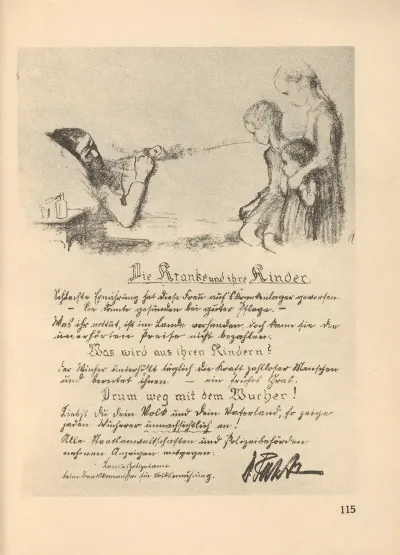 Die Kranke und ihre Kinder.
Schlechte Ernährung hat diese Frau auf's Krankenlager geworfen
– Sie könnte gesunden bei guter Pflege. –
Was ihr nottut, ist im Lande vorhanden, doch kann sie die
unerhörten Preise nicht bezahlen.
Was wird aus ihren Kindern?
Der Wucher untergräbt täglich die Kraft zahlloser Menschen
und bereitet ihnen – ein frühes Grab.
Drum weg mit dem Wucher!
Liebst Du dein Volk und dein Vaterland, so zeige
jeden Wucherer unnachsichtlich an!
Alle Staatsanwaltschaften und Polizeibehörden
nehmen Anzeigen entgegen.
Landespolizeiamt
beim Staatskommissar für Volksernährung.
115